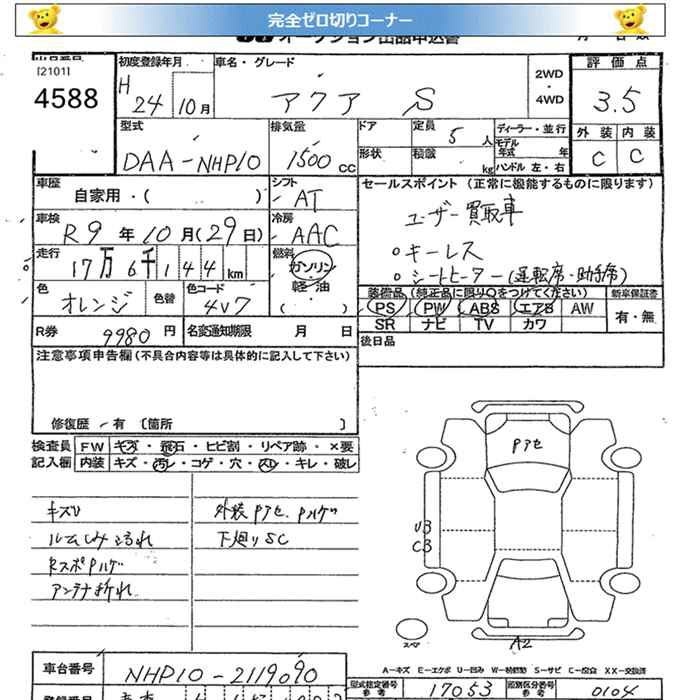 完全ゼロ切りコーナー
オークション出品申込書
出品番号
[2101]
4588
初度登録年月
H 24 10月
車名・グレード
アクア S
2WD
・
4WD
評価点
3.5
外装 内装
C C
型式
DAA-NHP10
排気量
1500cc
ドア
形状
定員 5人
積載 kg
ディーラー・並行
モデル年式 年
ハンドル 左・右
車歴
自家用・( )
シフト
AT
車検
R9年10月(29日)
冷房
AAC
走行
17万6千144km
燃料
ガソリン・
軽油・
( )
色
オレンジ
色替
色コード
4V7
R券
9980円
名変通知期限 月 日
セールスポイント (正常に機能するものに限ります)
ユーザー買取車
○キーレス
○シートヒーター(運転席・助手席)
装備品(純正品に限り○をつけてください)
PS PW ABS エアB AW
SR ナビ TV カワ
新車保証書
有・無
後日品
注意事項申告欄(不具合内容等は具体的に記入して下さい)
修復歴 有 〔箇所 〕
検査員記入欄
FW キズ・飛石・ヒビ割・リペア跡・×要
内装 キズ・汚レ・コゲ・穴・スレ・キレ・破レ
キズU
ルームしみよごれ
RスポPハゲ
アンテナ折れ
外装Pアセ、Pハゲ
下廻りSC
Pアセ
U3
C3
スペア
A2
A-キズ E-エクボ U-凹み W-補修跡 S-サビ C-腐食 XX-交換済
車台番号
NHP10-2119090
型式指定番号
参考
17053
類別区分番号
参考
0104
登録番号